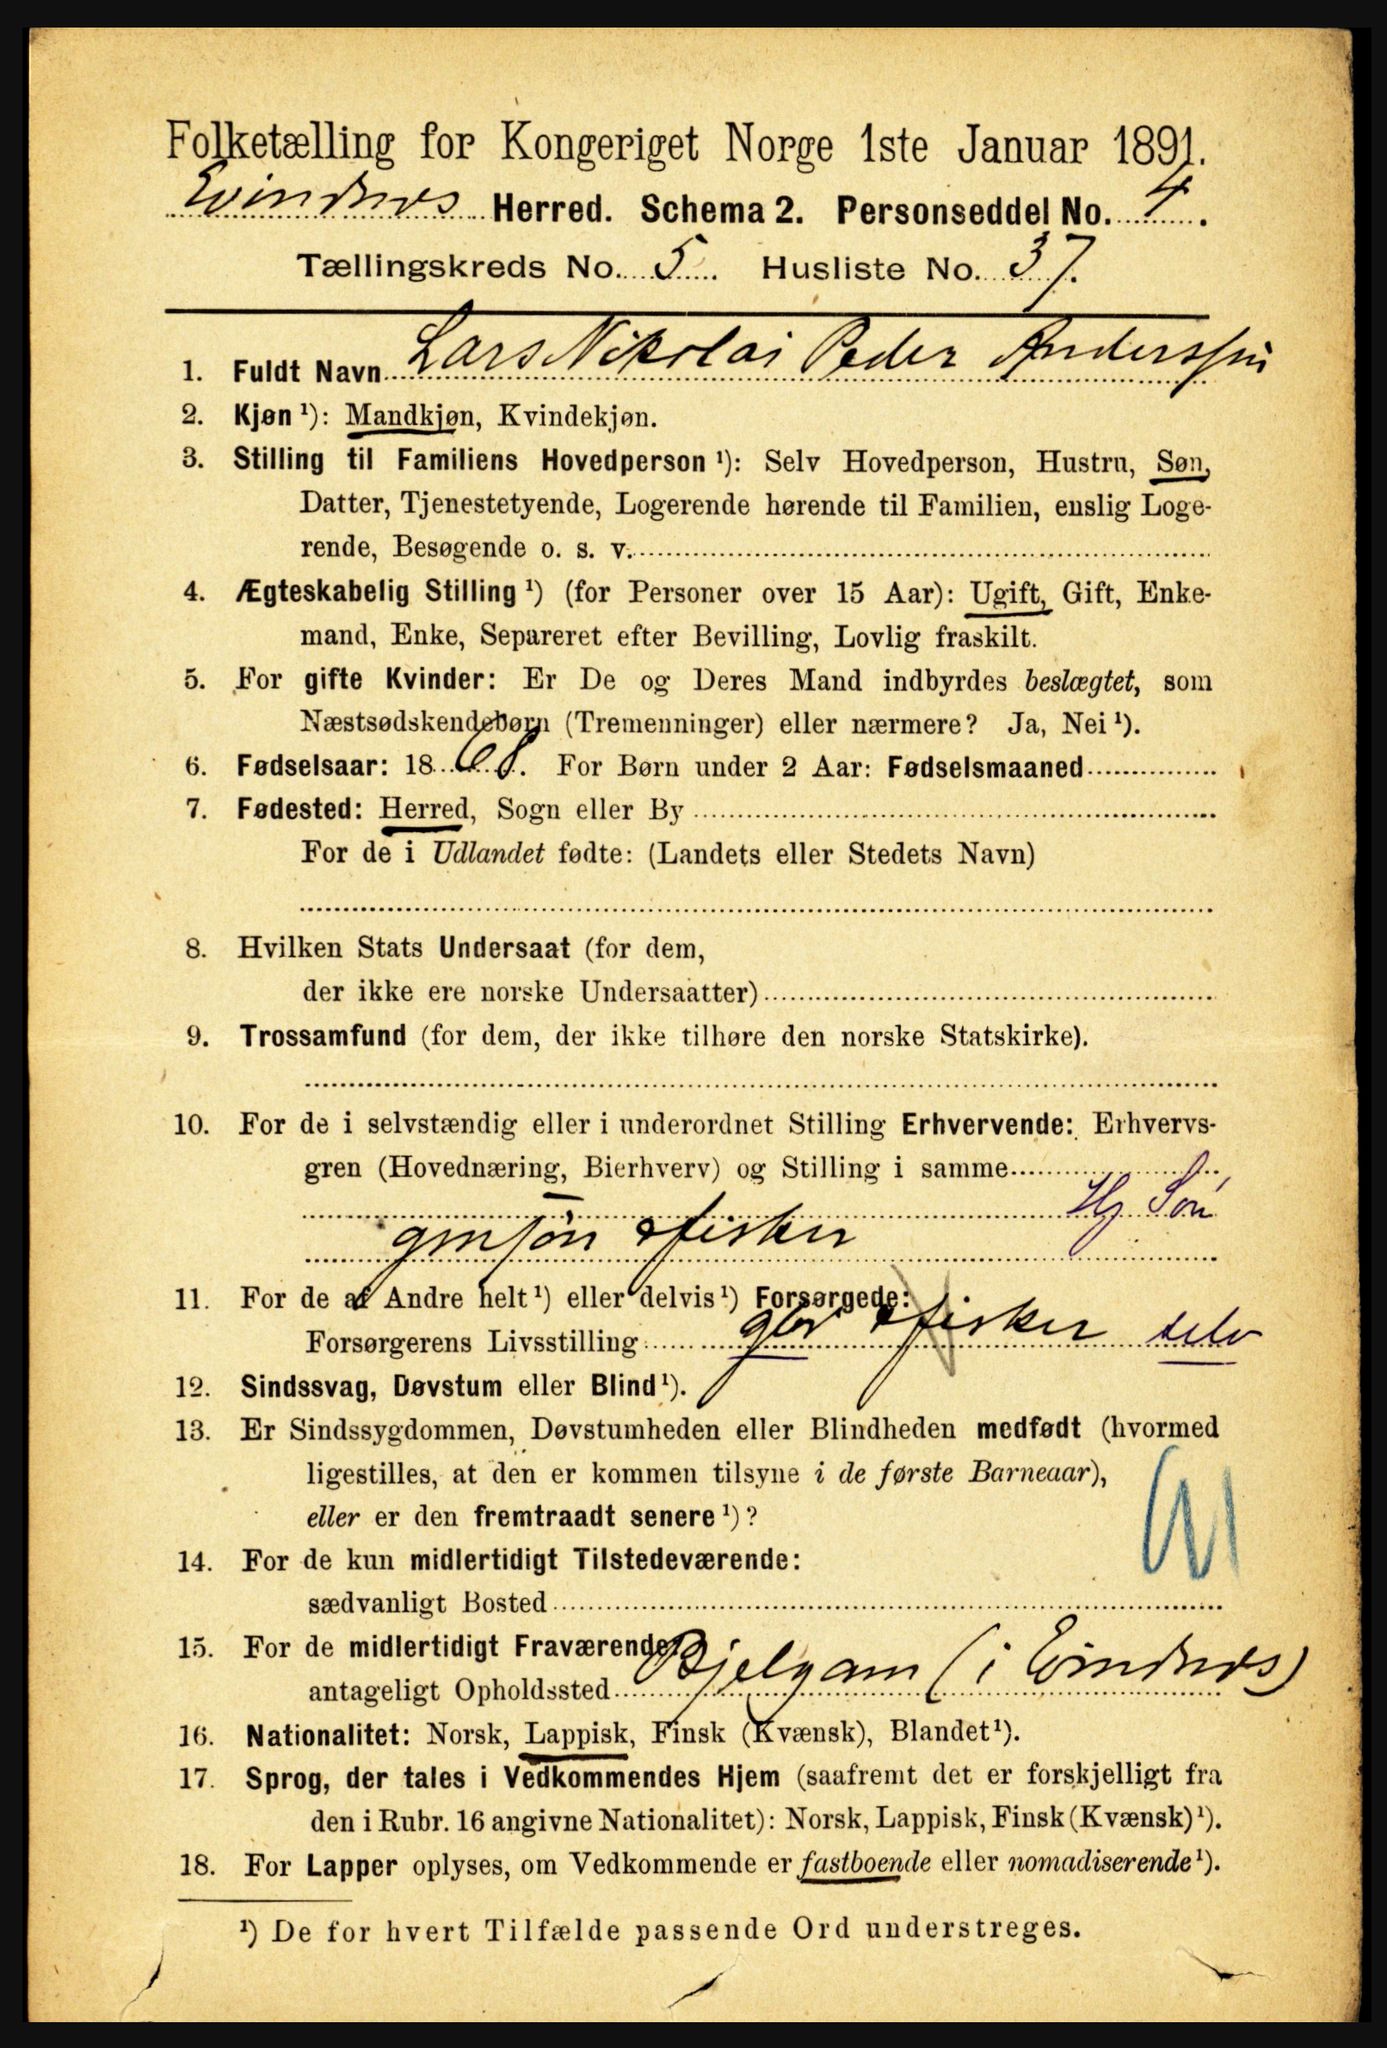 Folketælling for Kongeriget Norge 1ste Januar 1891.
Evindnes Herred. Schema 2. Personseddel No. 4.
Tællingskreds No. 5. Husliste No. 37.
1. Fuldt Navn Lars Nikolai Peder Anderssøn
2. Kjøn ¹): Mandkjøn, Kvindekjøn.
3. Stilling til Familiens Hovedperson ¹): Selv Hovedperson, Hustru, Søn,
Datter, Tjenestetyende, Logerende hørende til Familien, enslig Loge-
rende, Besøgende o. s. v.
4. Ægteskabelig Stilling ¹) (for Personer over 15 Aar): Ugift, Gift, Enke-
mand, Enke, Separeret efter Bevilling, Lovlig fraskilt.
5. For gifte Kvinder: Er De og Deres Mand indbyrdes beslægtet, som
Næstsødskendebørn (Tremenninger) eller nærmere? Ja, Nei ¹).
6. Fødselsaar: 1868. For Børn under 2 Aar: Fødselsmaaned
7. Fødested: Herred, Sogn eller By
For de i Udlandet fødte: (Landets eller Stedets Navn)
8. Hvilken Stats Undersaat (for dem,
der ikke ere norske Undersaatter)
9. Trossamfund (for dem, der ikke tilhøre den norske Statskirke).
10. For de i selvstændig eller i underordnet Stilling Erhvervende: Erhvervs-
gren (Hovednæring, Bierhverv) og Stilling i samme
Hj Søn
gmsøn Fisker
11. For de af Andre helt ¹) eller delvis ¹) Forsørgede:
Forsørgerens Livsstilling gbr Fisker selv
12. Sindssvag, Døvstum eller Blind ¹).
13. Er Sindssygdommen, Døvstumheden eller Blindheden medfødt (hvormed
ligestilles, at den er kommen tilsyne i de første Barneaar),
eller er den fremtraadt senere ¹)?
14. For de kun midlertidigt Tilstedeværende:
sædvanligt Bosted
15. For de midlertidigt Fraværende:
antageligt Opholdssted Bjelgam (i Evindnes)
16. Nationalitet: Norsk, Lappisk, Finsk (Kvænsk), Blandet ¹).
17. Sprog, der tales i Vedkommendes Hjem (saafremt det er forskjelligt fra
den i Rubr. 16 angivne Nationalitet): Norsk, Lappisk, Finsk (Kvænsk) ¹).
18. For Lapper oplyses, om Vedkommende er fastboende eller nomadiserende ¹).
¹) De for hvert Tilfælde passende Ord understreges.